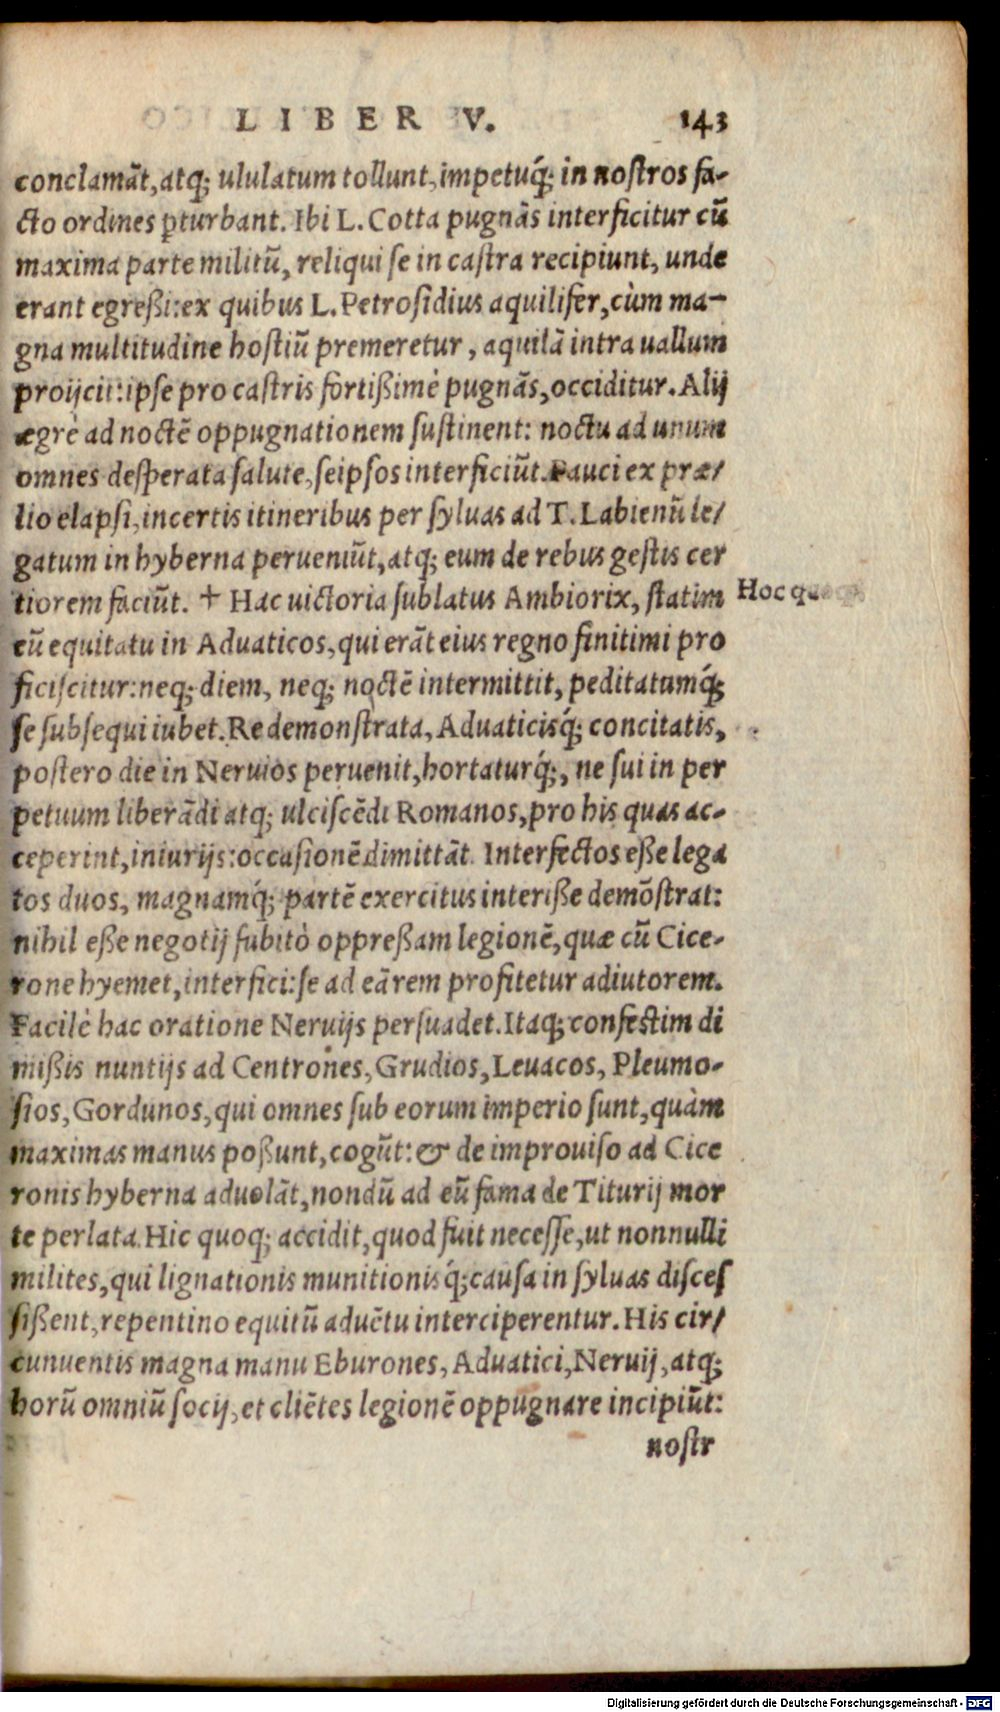 LIBER V. 143
conclamāt, atq; ululatum tollunt, impetuq́; in nostros fa-
cto ordines ꝑturbant. Ibi L. Cotta pugnãs interficitur cũ
maxima parte militũ, reliqui se in castra recipiunt, unde
erant egreßi: ex quibus L. Petrosidius aquilifer, cùm ma-
gna multitudine hostiũ premeretur, aquilã intra uallum
proijcit: ipse pro castris fortißimè pugnãs, occiditur. Alij
ægrè ad noctẽ oppugnationem sustinent: noctu ad unum
omnes desperata salute, seipsos interficiũt. Pauci ex præ/
lio elapsi, incertis itineribus per syluas ad T. Labienũ le/
gatum in hyberna perueniũt, atq; eum de rebus gestis cer
tiorem faciũt. + Hac uictoria sublatus Ambiorix, statim
Hoc
cũ equitatu in Aduaticos, qui erãt eius regno finitimi pro
ficiscitur: neq; diem, neq; noctẽ intermittit, peditatumq́;
se subsequi iubet. Re demonstrata, Aduaticisq́; concitatis,
postero die in Neruios peruenit, hortaturq́;, ne sui in per
petuum liberãdi atq; ulciscẽdi Romanos, pro his quas ac-
ceperint, iniurijs: occasionẽ dimittãt. Interfectos eße lega
tos duos, magnamq́; partẽ exercitus interiße demõstrat:
nihil eße negotij subitò oppreßam legionẽ, quæ cũ Cice-
rone hyemet, interfici: se ad eã rem profitetur adiutorem.
Facilè hac oratione Neruijs persuadet. Itaq; confestim di
mißis nuntijs ad Centrones, Grudios, Leuacos, Pleumo-
sios, Gordunos, qui omnes sub eorum imperio sunt, quàm
maximas manus poßunt, cogũt: & de improuiso ad Cice
ronis hyberna aduolãt, nondũ ad eũ fama de Titurij mor
te perlata. Hic quoq; accidit, quod fuit necesse, ut nonnulli
milites, qui lignationis munitionisq́; causa in syluas disces
sißent, repentino equitũ aduẽtu interciperentur. His cir/
cunuentis magna manu Eburones, Aduatici, Neruij, atq;
horũ omniũ socij, et cliẽtes legionẽ oppugnare incipiũt:
nostr
Digitalisierung gefördert durch die Deutsche Forschungsgemeinschaft - DFG